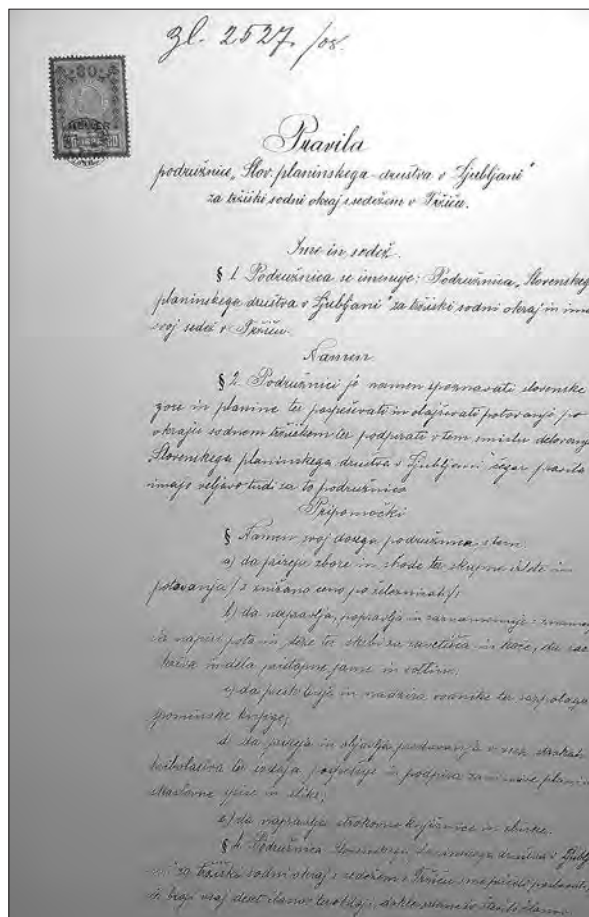 Zl. 2527/08.
Pravila
podružnice „Slov. planinskega društva v Ljubljani"
za tržiški sodni okraj s sedežem v Tržiču.
Ime in sedež.
§ 1. Podružnica se imenuje: Podružnica „Slovenskega
planinskega društva v Ljubljani" za tržiški sodni okraj in ima
svoj sedež v Tržiču.
Namen
§ 2. Podružnici je namen spoznavati slovenske
gore in planine ter pospeševati in olajševati potovanje po
okraju sodnem tržiškem ter podpirati v tem smislu delovanje
Slovenskega planinskega društva v Ljubljani čegar pravila
imajo veljavo tudi za to podružnico
Pripomočki
§ Namen svoj dosega podružnica s tem
a) da prireja zbore in shode ter skupne izlete in
potovanja /: z znižano ceno po železnicah :/;
b) da napravlja, popravlja in zaznamenuje
napisi pota in steze ter skrbi za zavetišča in koče, da
in dela pristopne jame in votline;
c) da in nadzira vodnike ter razpolaga
spominske knjige;
d. da prireja in oskrblja predavanja v
ter izdaja, pospešuje in podpira planin
spise in slike;
e) da napravlja strokovne knjižnice in zbirke.
§ 4. Podružnica Slovenskega planinskega društva v Ljublj
za tržiški sodni okraj s sedežem v Tržiču sme pričeti poslovati,